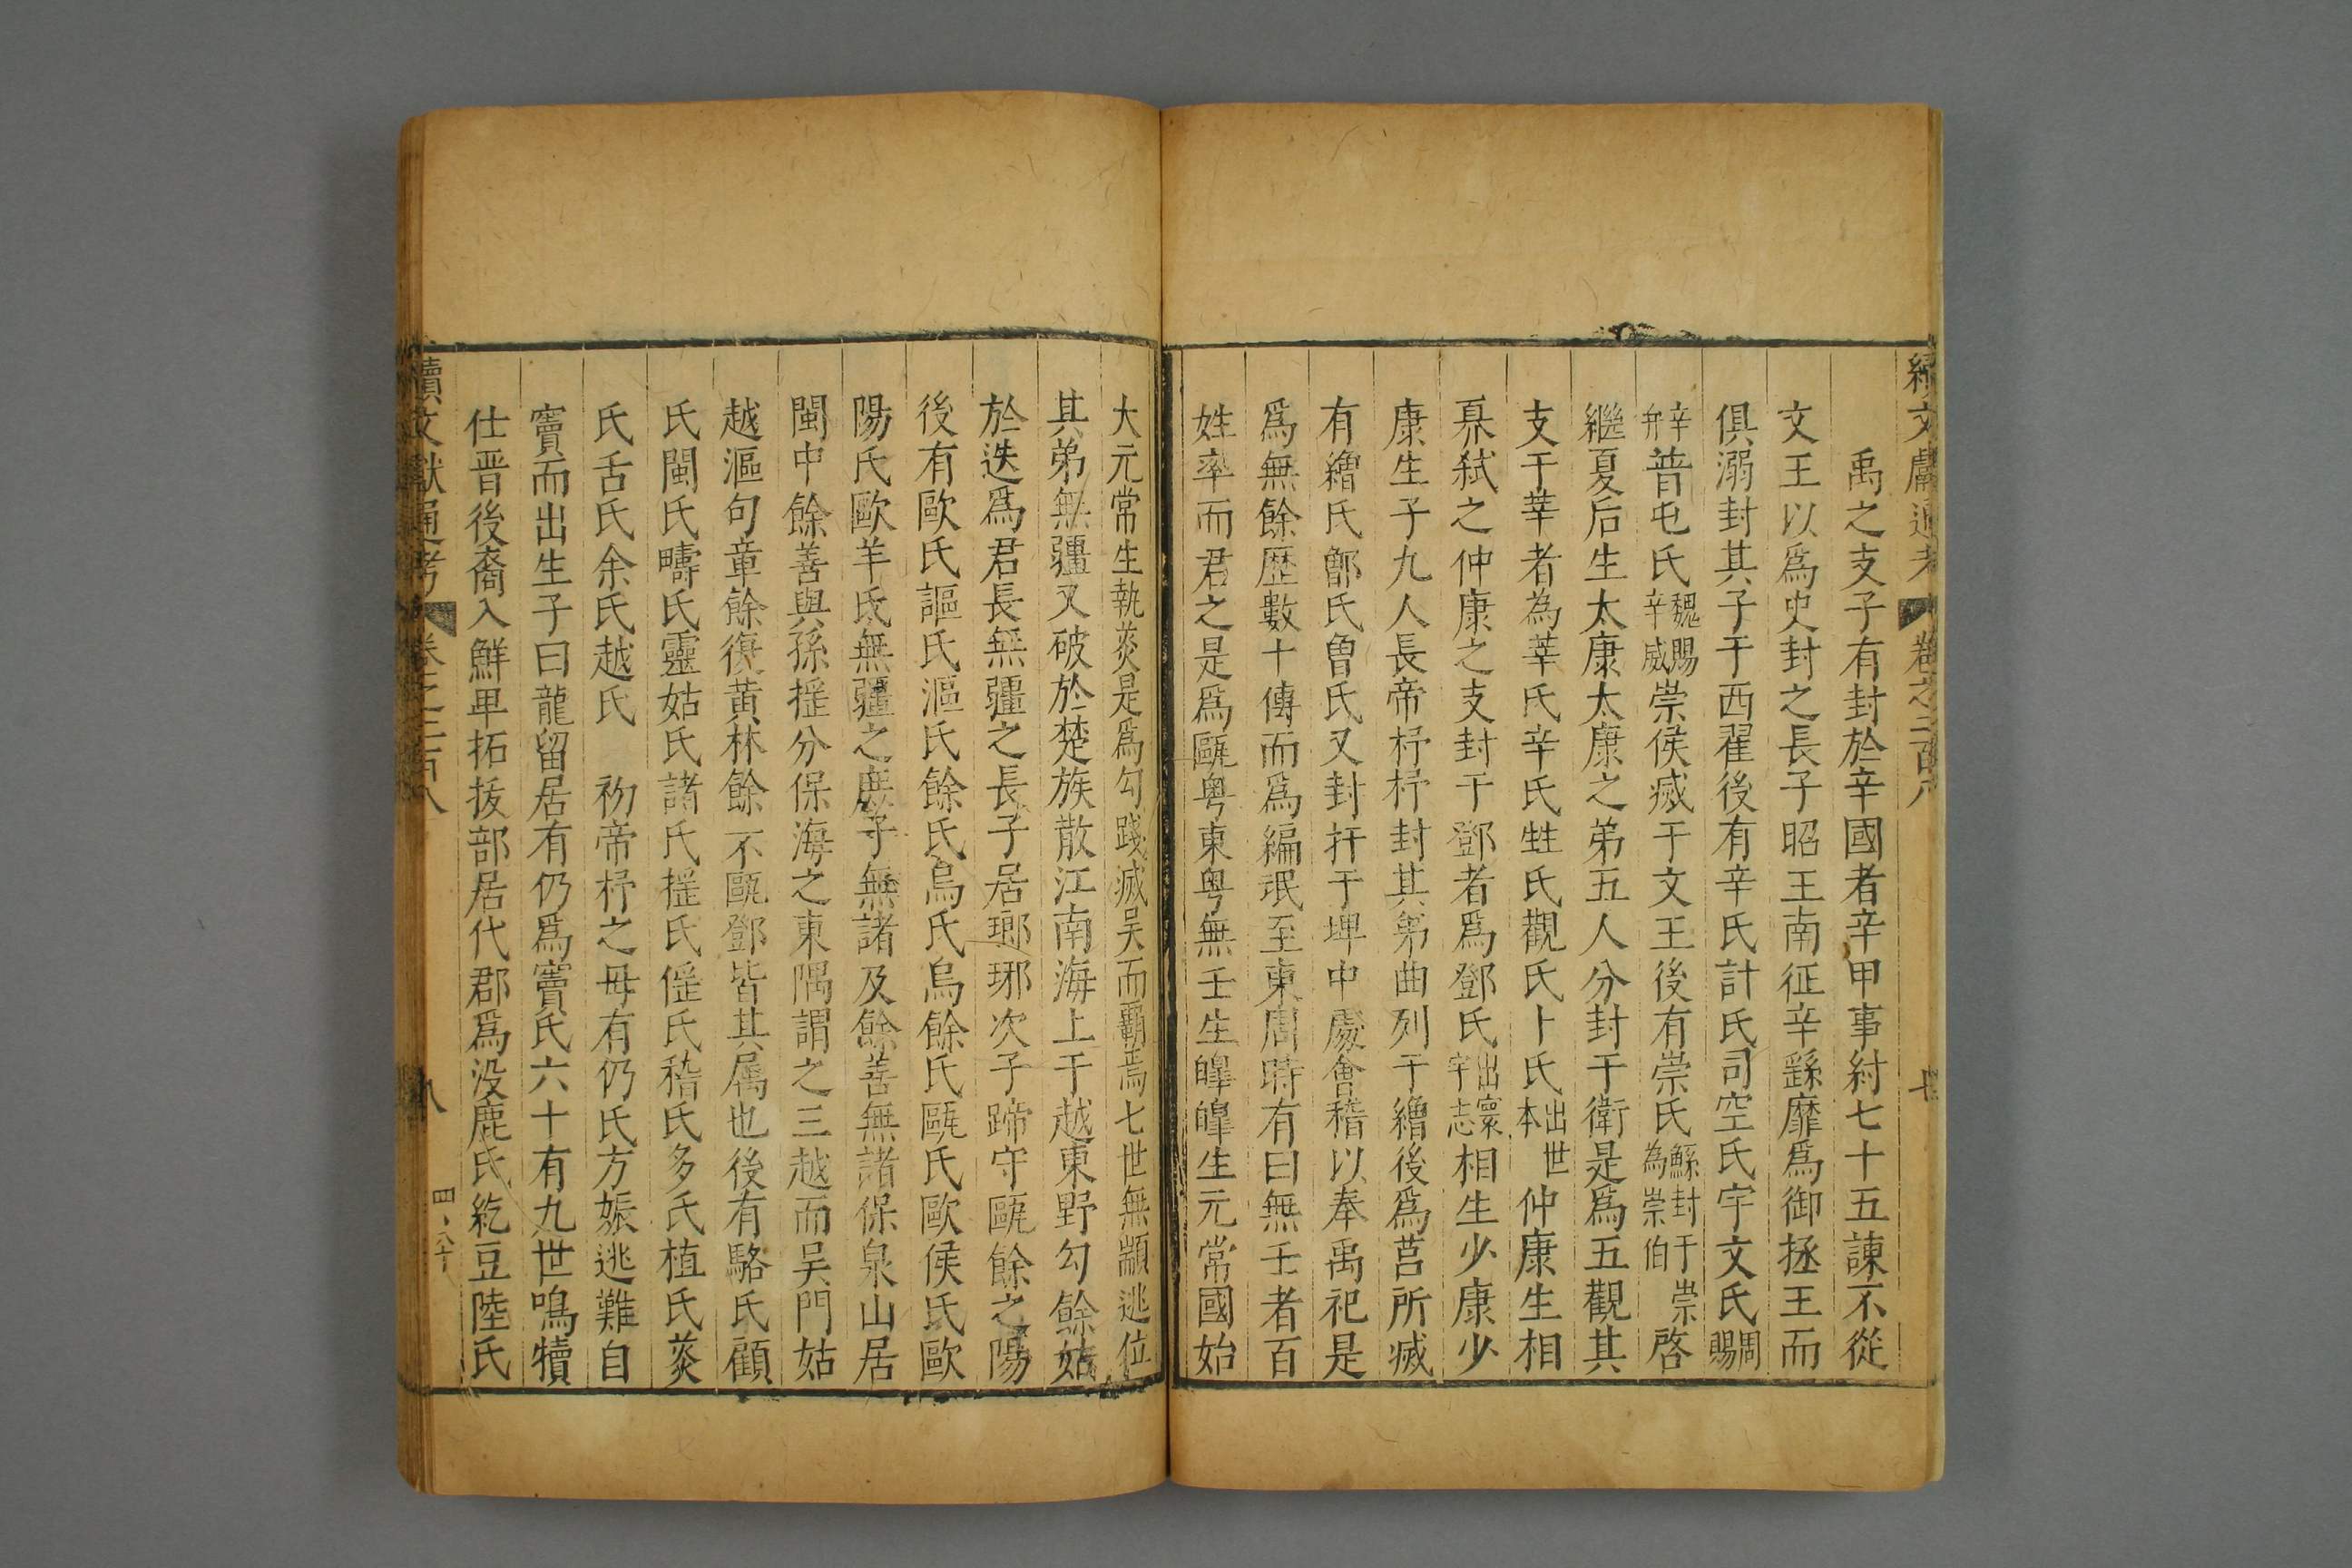 續文獻通考 卷之二百八 七
禹之支子有封於辛國者辛甲事紂七十五諫不從
文王以爲史封之長子昭王南征辛繇靡爲御拯王而
俱溺封其子于西翟後有辛氏計氏司空氏宇文氏周賜
辛毌普屯氏魏賜辛威崇侯滅于文王後有崇氏鯀封于崇爲崇伯啓
繼夏后生太康太康之弟五人分封于衛是爲五觀其
支于莘者為莘氏辛氏甡氏觀氏卜氏出世本仲康生相
㚖弑之仲康之支封于鄧者爲鄧氏出寰宇志相生少康少
康生子九人長帝杼杼封其弟曲列于繒後爲莒所滅
有繒氏鄫氏曾氏又封扜于埤中處會稽以奉禹祀是
爲無餘歷數十傳而爲編氓至東周時有曰無壬者百
姓率而君之是爲甌粤東粤無壬生皥皥生元常國始
大元常生執菼是爲勾踐滅吴而覇焉七世無顓逃位
其弟無疆又破於楚族散江南海上于越東野勾餘姑
於迭爲君長無疆之長子居瑯琊次子蹄守甌餘之陽
後有歐氏謳氏漚氏餘氏烏氏烏餘氏甌氏歐侯氏歐
陽氏歐羊氏無疆之庶子無諸及餘善無諸保泉山居
閩中餘善與孫摇分保海之東隅謂之三越而吴門姑
越漚句章餘復黄林餘不甌鄧皆其属也後有駱氏顧
氏閩氏疇氏靈姑氏諸氏摇氏傜氏稽氏多氏植氏菼
氏舌氏余氏越氏　初帝杼之母有仍氏方娠逃難自
竇而出生子曰龍留居有仍爲竇氏六十有九世鳴犢
仕晋後裔入鮮卑拓拔部居代郡爲没鹿氏紇豆陸氏
續文獻通考 卷之二百八 八